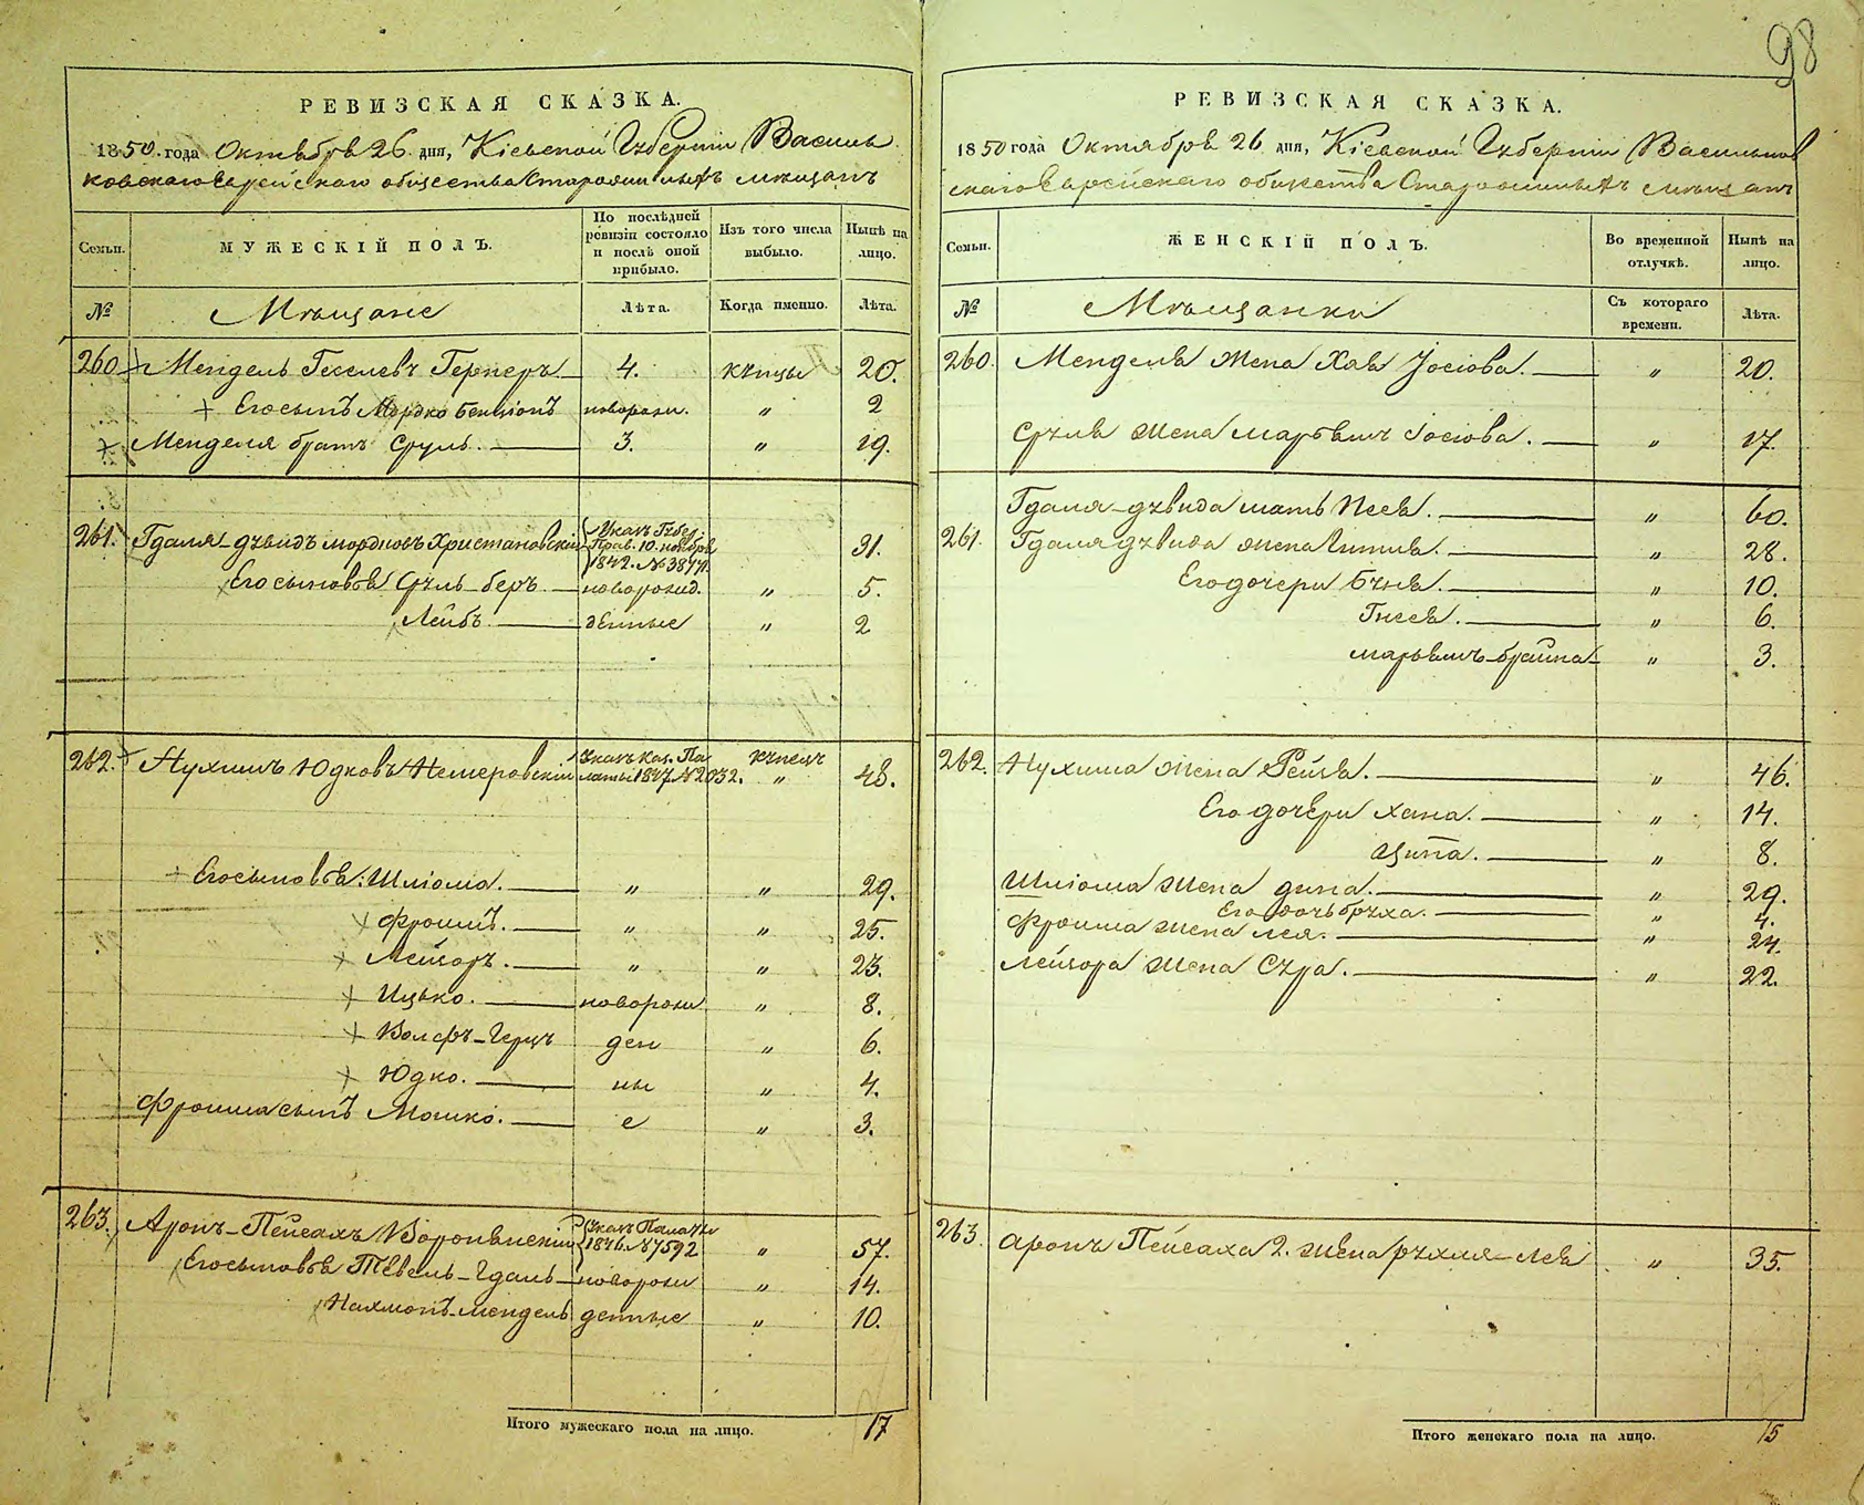 98
РЕВИЗСКАЯ СКАЗКА.
1850 года Октября 26 дня, Кіевской Губерніи Василь
ковскаго Еврейскаго общества мѣщанъ
Семьи.
МУЖЕСКІЙ ПОЛЪ.
По послѣдней ревизіи состояло и послѣ оной прибыло.
Изъ того числа выбыло.
Нынѣ на лицо.
№
Мѣщане
Лѣта.
Когда именно.
Лѣта.
260 Мендель Геселевъ Гернеръ 4. купцы 20.
Его сынъ Мордко Бенціонъ новорожд. " 2
Менделя братъ Сруль. 3. " 19.
261. Гдаля-дувидъ мордковъ Христановскій Указъ Губер. Прав. 10. ноября 1842. № 3874. 31.
Его сыновья Сруль-беръ новорожд. " 5.
Лейбъ денные " 2
262. Нухимъ Юдковъ Немеровскій Указъ Каз. Па латы 1847 № 2032. купецъ " 48.
Его сыновья: Шліома. " " 29.
Фроимъ. " " 25.
Лейзоръ. " " 23.
Ицько. новорож " 8.
Волфъ-Герцъ ден " 6.
Юдко. ны " 4.
Фроима сынъ Мошко. е " 3.
263. Аронъ-Пейсахъ Воронянскій Указъ Палаты 1846. № 7592 " 57.
Его сыновья Тевель-Гдаль новорож " 14.
Нахманъ-мендель денные " 10.
Итого мужескаго пола на лицо. 17
РЕВИЗСКАЯ СКАЗКА.
1850 года Октября 26 дня, Кіевской Губерніи Васильков
скаго Еврейскаго общества мѣщанъ
Семьи.
ЖЕНСКІЙ ПОЛЪ.
Во временной отлучкѣ.
Нынѣ на лицо.
№
Мѣщанки
Съ котораго времени.
Лѣта.
260. Менделя жена Хая Іосіова. " 20.
Сруля жена марьямъ Іосіова. " 17.
Гдаля-дувида мать Песя. " 60.
261. Гдаля дувида жена Гитля. " 28.
Его дочери Буня. " 10.
Гнеся. " 6.
марьямъ-брайна " 3.
262. Нухима жена Рейзя. " 46.
Его дочери Хана. " 14.
Ципа. " 8.
Шліома жена дина. " 29.
Его дочь бруха. " 4.
Фроима жена лея. " 24.
Лейзора жена Сура. " 22.
263. Аронъ Пейсаха 2. жена рухля-лея " 35.
Итого женскаго пола на лицо. 15